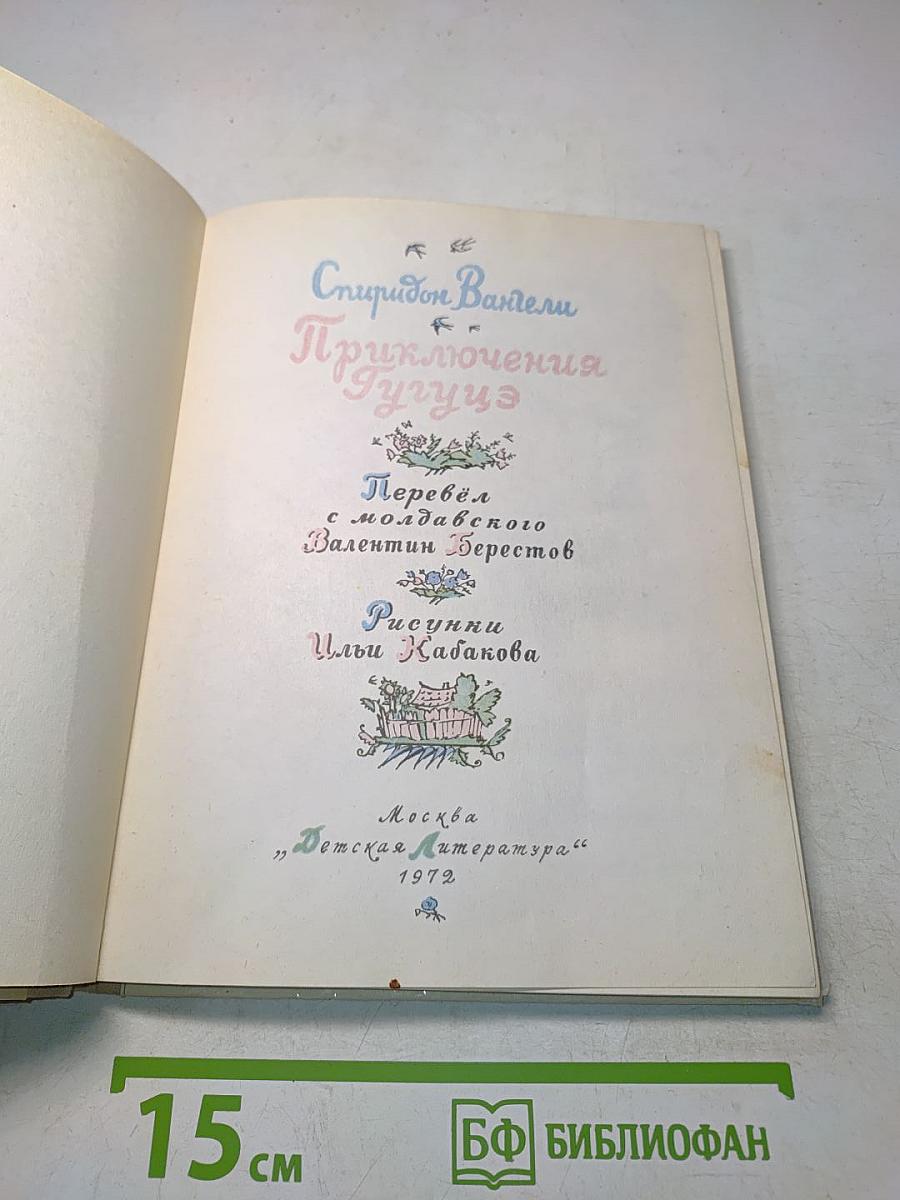 Спиридон Вангели
Приключения
Гугуцэ
Перевёл
с молдавского
Валентин Берестов
Рисунки
Ильи Кабакова
Москва
„Детская Литература“
1972
15 см
БФ БИБЛИОФАН